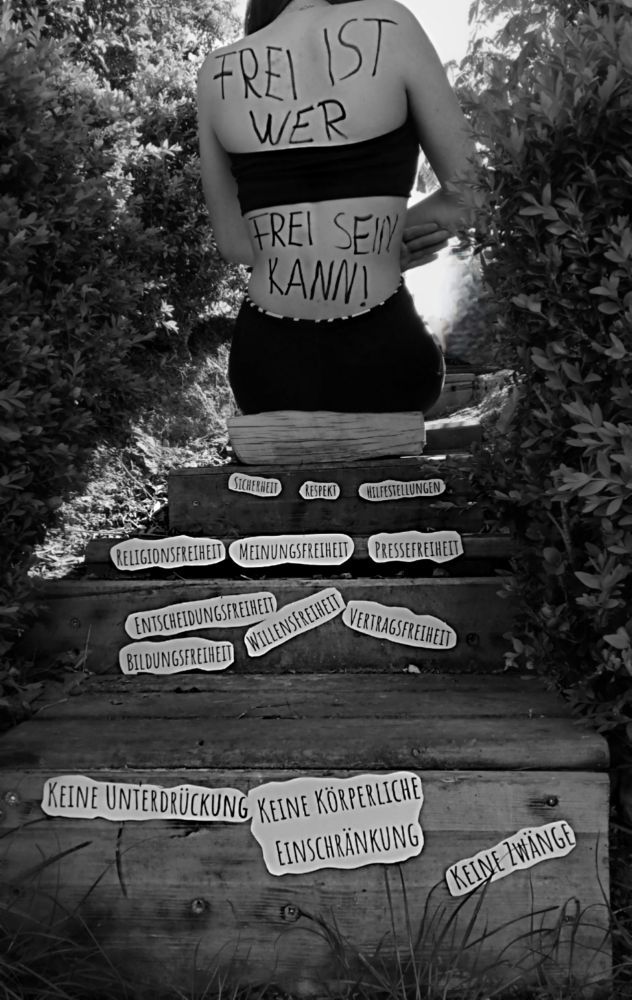 FREI IST
WER
FREI SEIN
KANN!
SICHERHEIT RESPEKT HILFESTELLUNGEN
RELIGIONSFREIHEIT MEINUNGSFREIHEIT PRESSEFREIHEIT
ENTSCHEIDUNGSFREIHEIT WILLENSFREIHEIT VERTRAGSFREIHEIT
BILDUNGSFREIHEIT
KEINE UNTERDRÜCKUNG
KEINE KÖRPERLICHE
EINSCHRÄNKUNG
KEINE ZWÄNGE